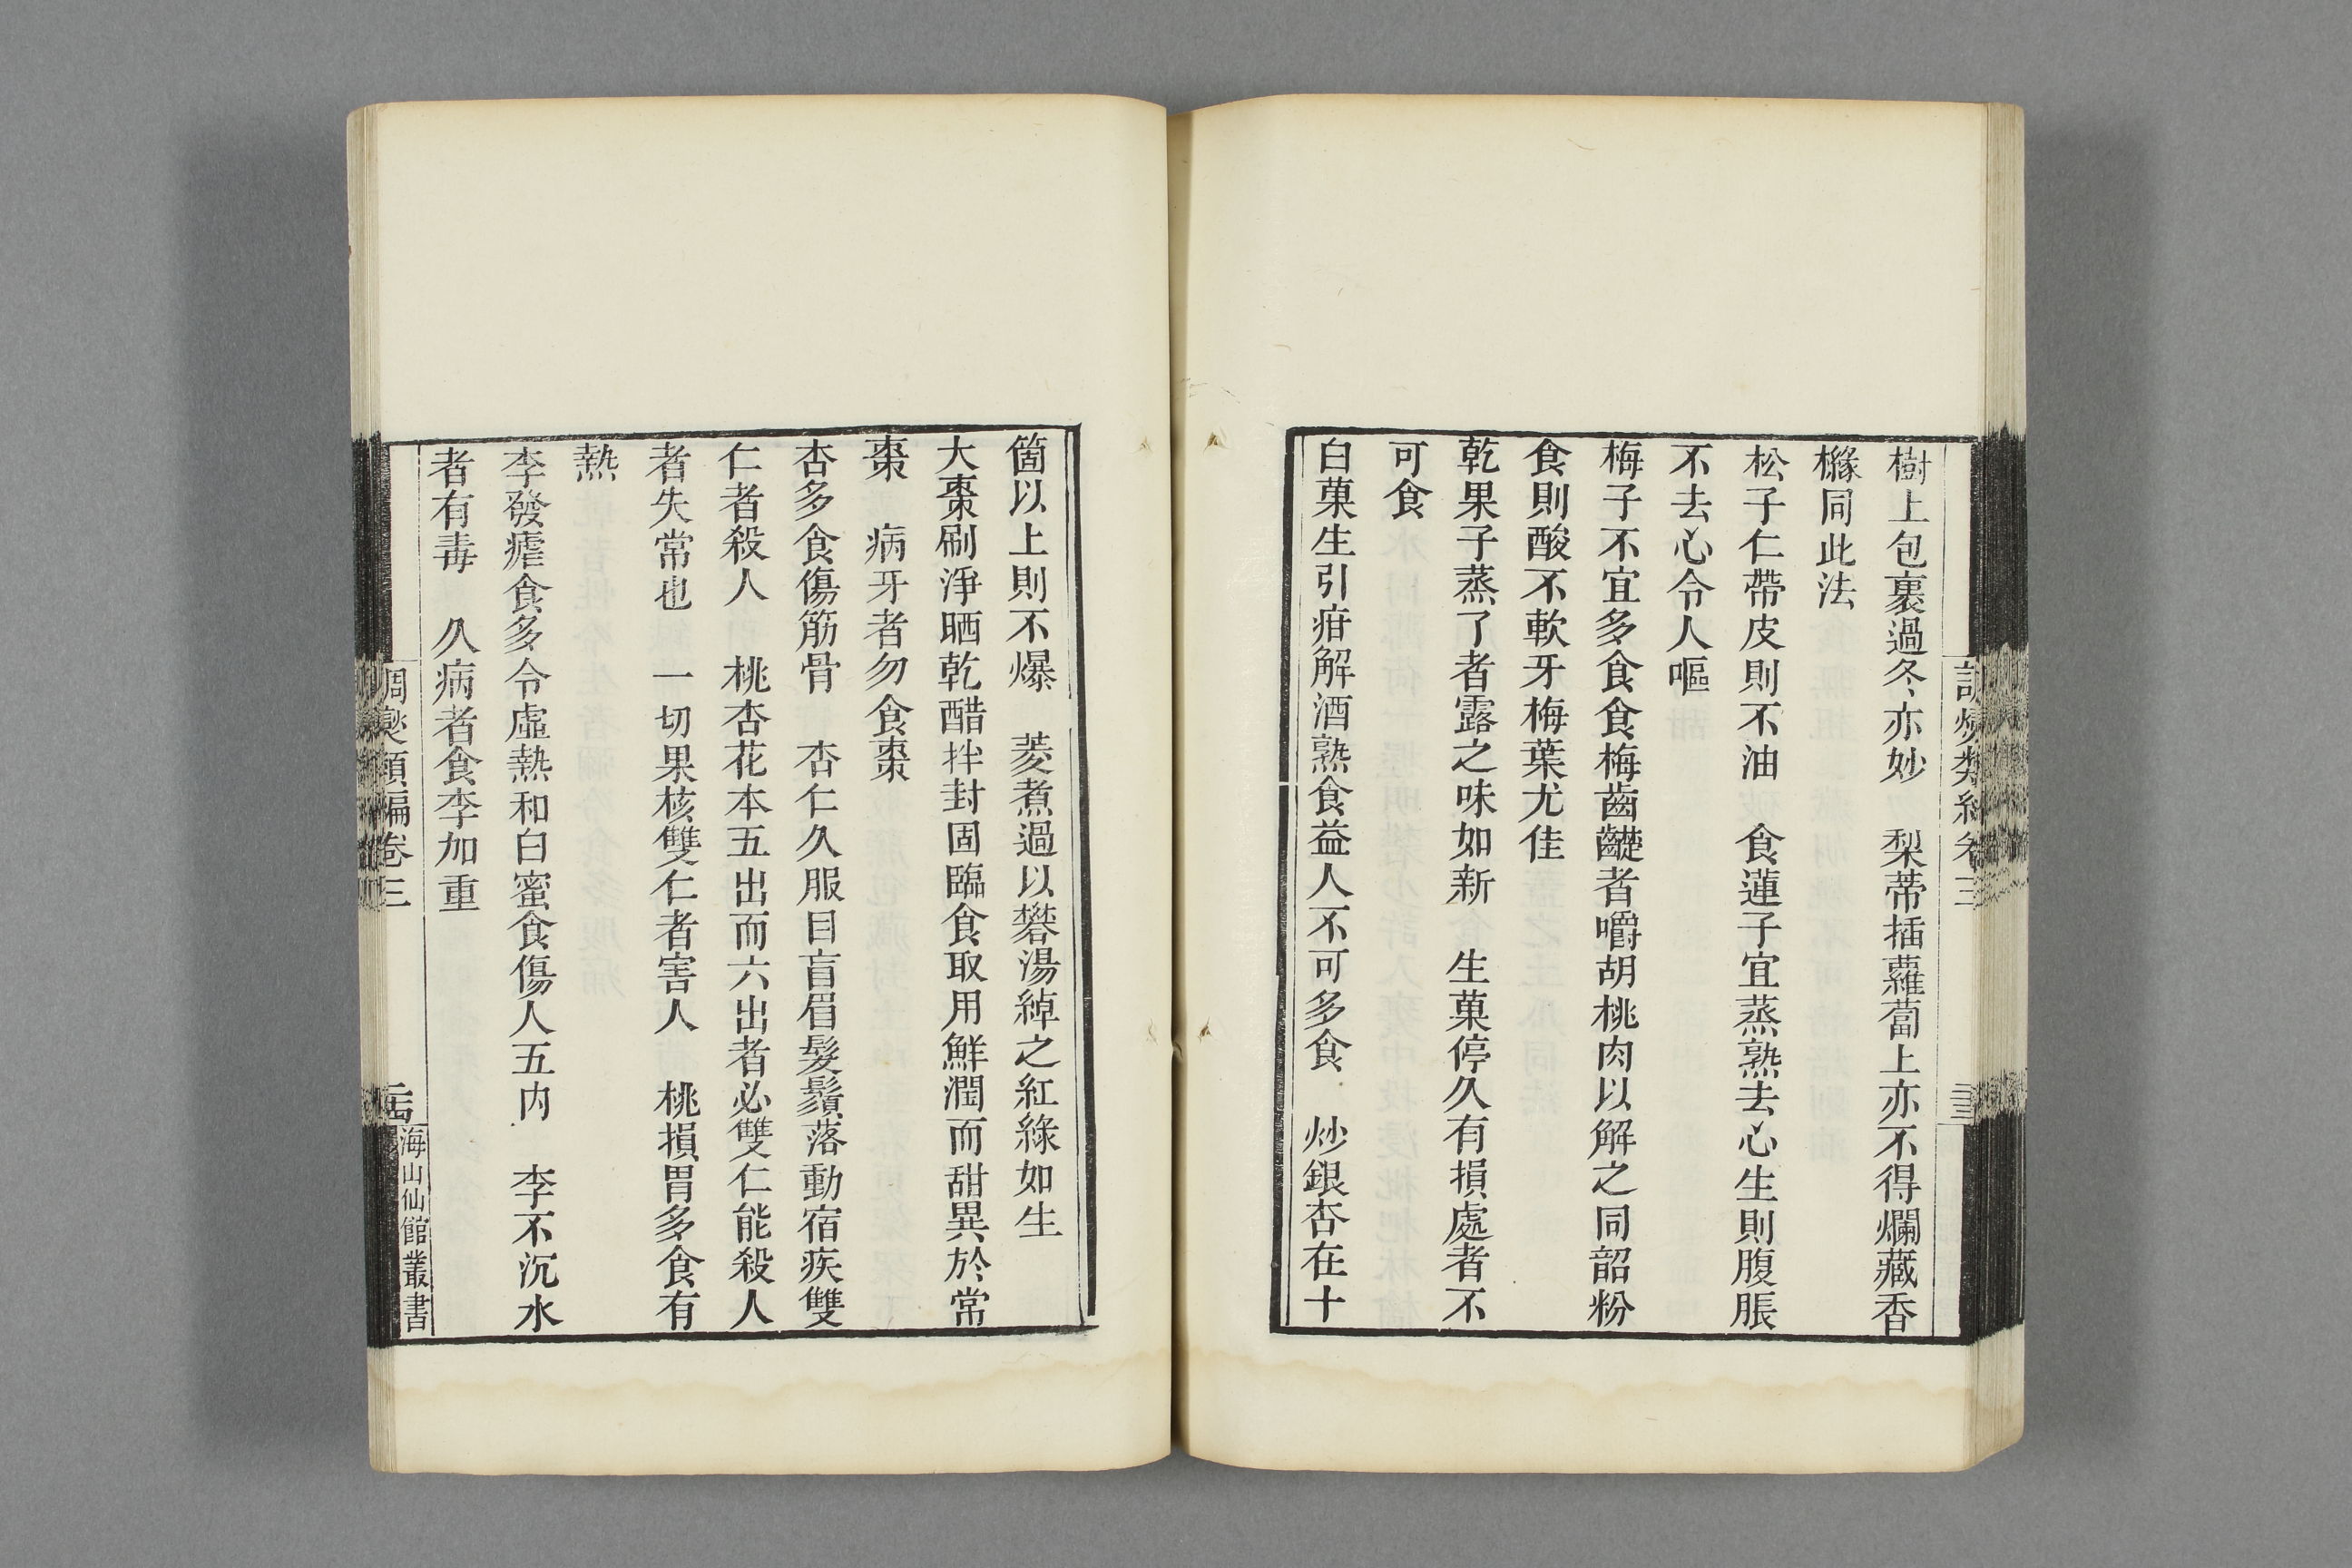 樹上包裹過冬亦妙　梨蒂插蘿蔔上亦不得爛藏香
櫞同此法
松子仁帶皮則不油　食蓮子宜蒸熟去心生則腹脹
不去心令人嘔
梅子不宜多食食梅齒齼者嚼胡桃肉以解之同韶粉
食則酸不軟牙梅葉尤佳
乾果子蒸了者露之味如新　生菓停久有損處者不
可食
白菓生引疳解酒熟食益人不可多食　炒銀杏在十
箇以上則不爆　菱煮過以礬湯綽之紅綠如生
大棗刷淨晒乾醋拌封固臨食取用鮮潤而甜異於常
棗　病牙者勿食棗
杏多食傷筋骨　杏仁久服目盲眉髮鬚落動宿疾雙
仁者殺人　桃杏花本五出而六出者必雙仁能殺人
者失常也　一切果核雙仁者害人　桃損胃多食有
熱
李發瘧食多令虛熱和白蜜食傷人五內　李不沉水
者有毒　久病者食李加重
調燮類編卷三
海山仙館叢書